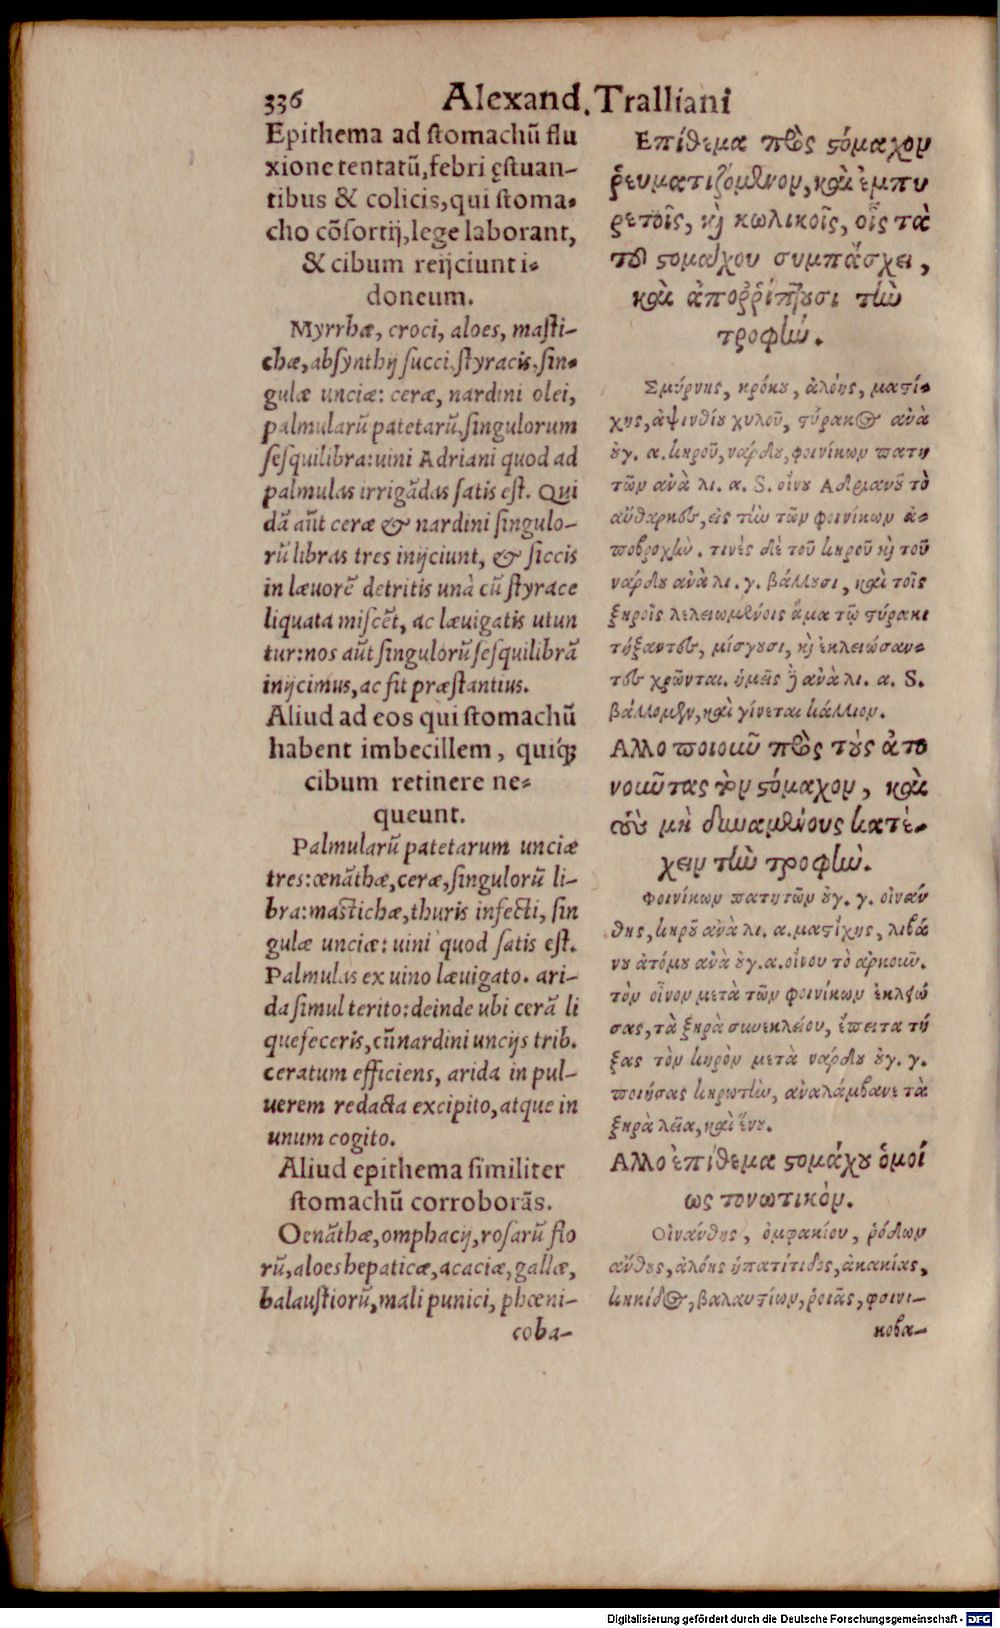 336 Alexand. Tralliani
Epithema ad stomachũ flu
xione tentatũ, febri ęstuan-
tibus & colicis, qui stoma-
cho cõsortij, lege laborant,
& cibum reijciunt i-
doneum.
Myrrhæ, croci, aloes, masti-
chæ, absynthij succi, styracis, sin-
gulæ unciæ: ceræ, nardini olei,
palmularũ patetarũ, singulorum
sesquilibra: uini Adriani quod ad
palmulas irrigãdas satis est. Qui
dã aũt ceræ & nardini singulo-
rũ libras tres inijciunt, & siccis
in læuorẽ detritis unà cũ styrace
liquata miscẽt, ac læuigatis utun
tur: nos aũt singulorũ sesquilibrã
inijcimus, ac fit præstantius.
Aliud ad eos qui stomachũ
habent imbecillem, quiq́ꝫ
cibum retinere ne-
queunt.
Palmularũ patetarum unciæ
tres: œnãthæ, ceræ, singulorũ li-
bra: mastichæ, thuris infecti, sin
gulæ unciæ: uini quod satis est.
Palmulas ex uino læuigato. ari-
da simul terito: deinde ubi cerã li
quefeceris, cũ nardini uncijs trib.
ceratum efficiens, arida in pul-
uerem redacta excipito, atque in
unum cogito.
Aliud epithema similiter
stomachũ corroborãs.
Oenãthæ, omphacij, rosarũ flo
rũ, aloes hepaticæ, acaciæ, gallæ,
balaustiorũ, mali punici, phœni-
coba-
Επίθεμα πρὸς ϛόμαχον
ῥευματιζόμενον, καὶ ἐμπυ
ρετοῖς, κὶ κωλικοῖς, οἷς τὰ
τοῦ ϛομάχου συμπάσχει,
καὶ ἀποῤῥίπτουσι τὴν
τροφήν.
Σμύρνης, κρόκου, ἀλόης, μαϛί-
χης, ἀψινθίου χυλοῦ, ϛύρακος ἀνὰ
ουγ. α. κηροῦ, νάρδου, φοινίκων πατη
τῶν ἀνὰ λι. α. S. οἴνου Αδριανοῦ τὸ
αὔθαρκες, εἰς τὴν τῶν φοινίκων ἀ-
ποβροχήν. τινὲς δὲ τοῦ κηροῦ κὶ τοῦ
νάρδου ἀνὰ λι. γ. βάλλουσι, καὶ τοῖς
ξηροῖς λελειωμένοις ἅμα τῷ ϛύρακι
τήξαντες, μίσγουσι, κὶ ἐκλειώσαν-
τες χρῶνται. ἡμεῖς δὲ ἀνὰ λι. α. S.
βάλλομεν, καὶ γίνεται κάλλιον.
Αλλο ποιοῦν πρὸς τοὺς ἀτο
νοῦντας τὸν ϛόμαχον, καὶ
τοὺς μὴ δυναμένους κατέ-
χειν τὴν τροφήν.
Φοινίκων πατητῶν ουγ. γ. οἰνάν
θης, κηροῦ ἀνὰ λι. α. μαϛίχης, λιβά
νου ἀτόμου ἀνὰ ουγ. α. οἴνου τὸ ἀρκοῦν.
τὸν οἶνον μετὰ τῶν φοινίκων ἐκλειώ
σας, τὰ ξηρὰ συνεκλείου, ἔπειτα τή
ξας τὸν κηρὸν μετὰ νάρδου ουγ. γ.
ποιήσας κηρωτὴν, ἀναλάμβανε τὰ
ξηρὰ λεῖα, καὶ ἕνου.
Αλλο ἐπίθεμα ϛομάχου ὁμοί
ως τονωτικὸν.
Οἰνάνθης, ὀμφακίου, ῥόδων
ἄνθους, ἀλόης ἡπατίτιδος, ἀκακίας,
κηκίδος, βαλαυϛίων, ῥοιᾶς, φοινι-
κοβα-
Digitalisierung gefördert durch die Deutsche Forschungsgemeinschaft - DFG